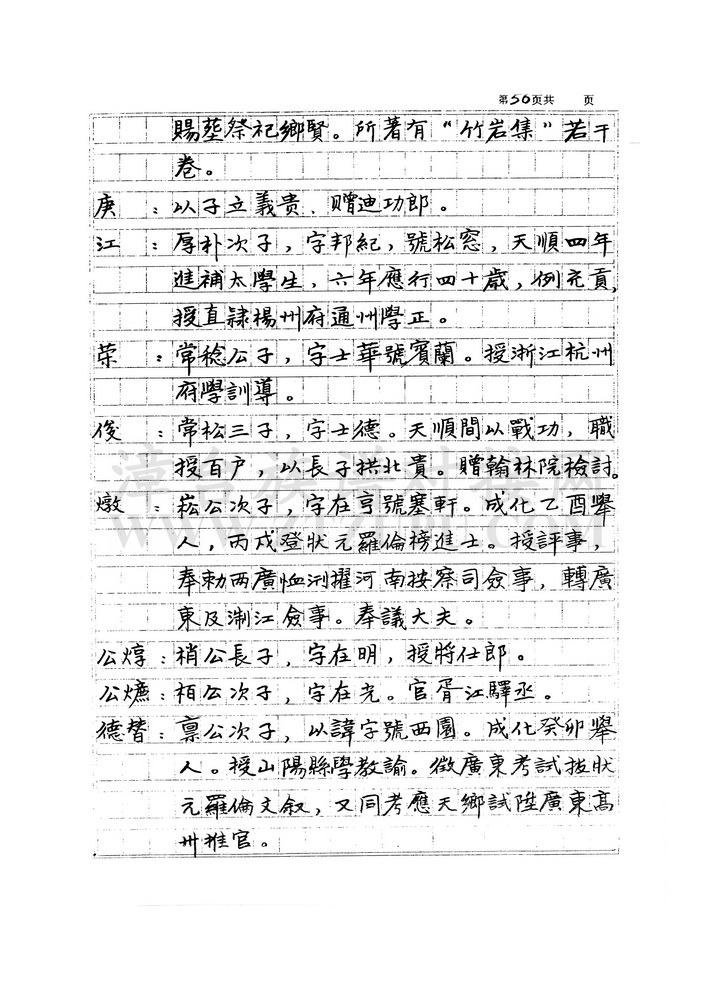 第50页共 页
賜塟祭祀鄉賢。所著有“竹岩集”若干
卷。
庚 : 以子立義貴、赠迪功郎。
江 : 厚朴次子，字邦紀，號松窓，天順四年
進補太學生，六年應行四十歲，例充貢，
授直隷楊州府通州學正。
荣 : 常稔公子，字士華號賓蘭。授浙江杭州
府學訓導。
俊 : 常松三子，字士德。天順間以戰功，職
授百户，以長子拱北貴。贈翰林院檢討。
燉 : 崧公次子，字在亨號塞軒。成化乙酉舉
人，丙戌登狀元羅倫榜進士。授評事，
奉勅两廣恤刑擢河南按察司僉事，轉廣
東及浙江僉事。奉議大夫。
公焞 : 梢公長子，字在明，授將仕郎。
公爊 : 栢公次子，字在光。官胥江驛丞。
德替 : 禀公次子，以諱字號西園。成化癸卯舉
人。授山陽縣學教諭。徵廣東考試拔狀
元羅倫文叙，又同考應天鄉試陞廣東高
州推官。
漳台族谱对接网